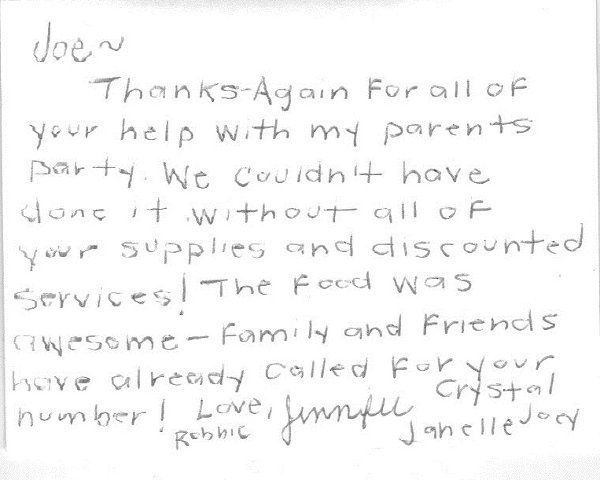 Joe~
Thanks-Again For all of
your help with my parents
party. We couldn't have
done it without all of
your supplies and discounted
services! The Food was
awesome - Family and Friends
have already called For your
number! Love, Jennifer Crystal
Robbie Janelle Joey